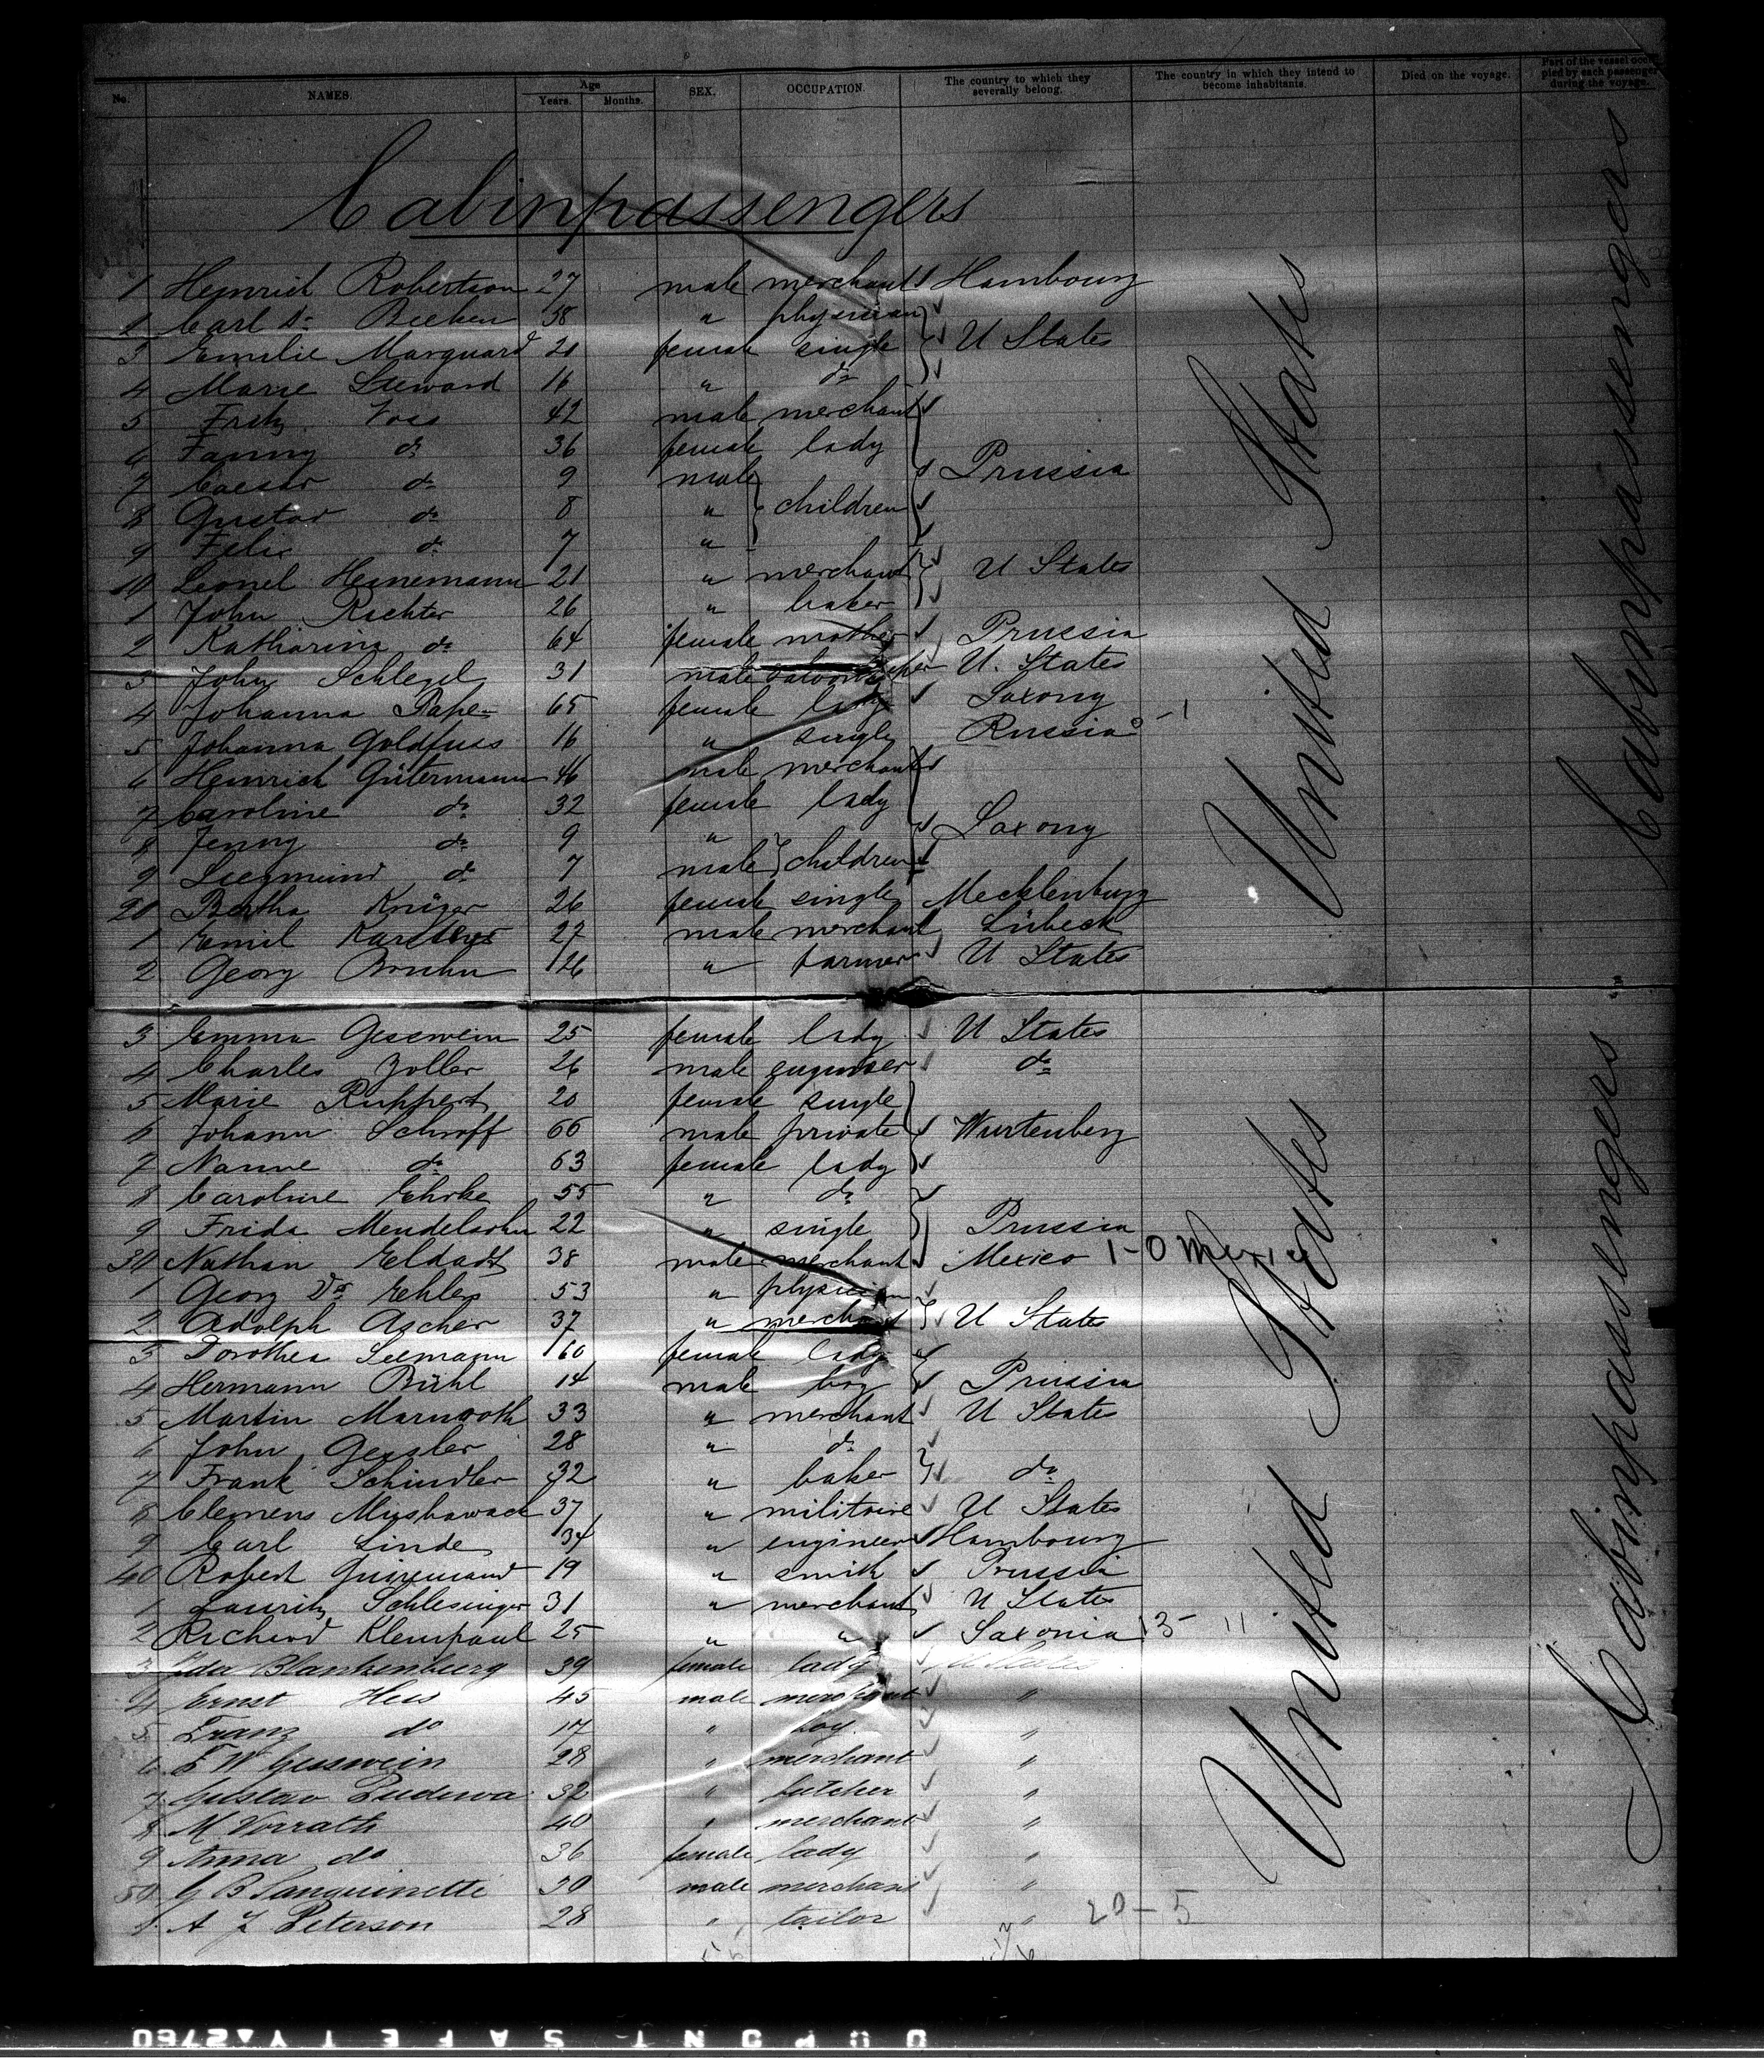 No. NAMES. Age Years. Months. SEX. OCCUPATION. The country to which they severally belong. The country in which they intend to become inhabitants. Died on the voyage. Part of the vessel occupied by each passenger during the voyage.
Cabinpassengers
1 Heinrich Robertson 27 male merchant Hambourg
2 Carl Dr Beeken 38 " physician
3 Emilie Marquard 21 female single U States
4 Marie Steward 16 " do
5 Fritz Voss 42 male merchant
6 Fanny do 36 female lady
7 Caesar do 9 male Prussia
8 Gustav do 8 " children
9 Felix do 7 "
10 Leonel Heinemann 21 " merchant U States
1 John Richter 26 " baker
2 Katharina do 64 female mother Prussia
3 John Schlegel 31 male U. States
4 Johanna Pape 65 female lady Saxony
5 Johanna Goldfuss 16 " single Russia
6 Heinrich Gütermann 46 male merchant
7 Caroline do 32 female lady
8 Jenny do 9 " Saxony
9 Siegmund do 7 male children
20 Bertha Krüger 26 female single Mecklenburg
1 Emil 27 male merchant Lübeck
2 Georg Bruhn 26 " farmer U States
3 Emma Gesswein 25 female lady U States
4 Charles Zoller 26 male engineer do
5 Marie Ruppert 20 female single
6 Johann Schroff 66 male private Wurtenberg
7 Nanne do 63 female lady
8 Caroline Ehrke 55 " do
9 Frida Mendelsohn 22 " single Prussia
30 Nathan Eldadt 38 male merchant Mexico 1-0 Mexic
1 Georg Dr Ehlers 53 " physician
2 Adolph Ascher 37 " merchant U States
3 Dorothea Seemann 60 female lady
4 Hermann Bühl 14 male boy Prussia
5 Martin Marwoth 33 " merchant U States
6 John Gessler 28 " do
7 Frank Schindler 32 " baker do
8 Clemens 37 " militaire U States
9 Carl Linde 34 " engineer Hambourg
40 Robert 19 " smith Prussia
1 Lauritz Schlesinger 31 " merchant U States
2 Richard Kleinpaul 25 " " Saxonia 13- 11
3 Ida Blankenburg 39 female lady U States
4 Ernst Hess 45 male merchant "
5 Franz do 17 " boy "
6 F W Gesswein 28 " merchant "
7 Gustav Puderwa 32 " butcher "
8 M Vorrath 40 " merchant "
9 Anna do 36 female lady "
50 G B Sanguinetti 30 male merchant "
1 A J Peterson 28 " tailor " 20-5
United States
United States
Cabinpassengers
Cabinpassengers
DUPONT SAFETY 2760